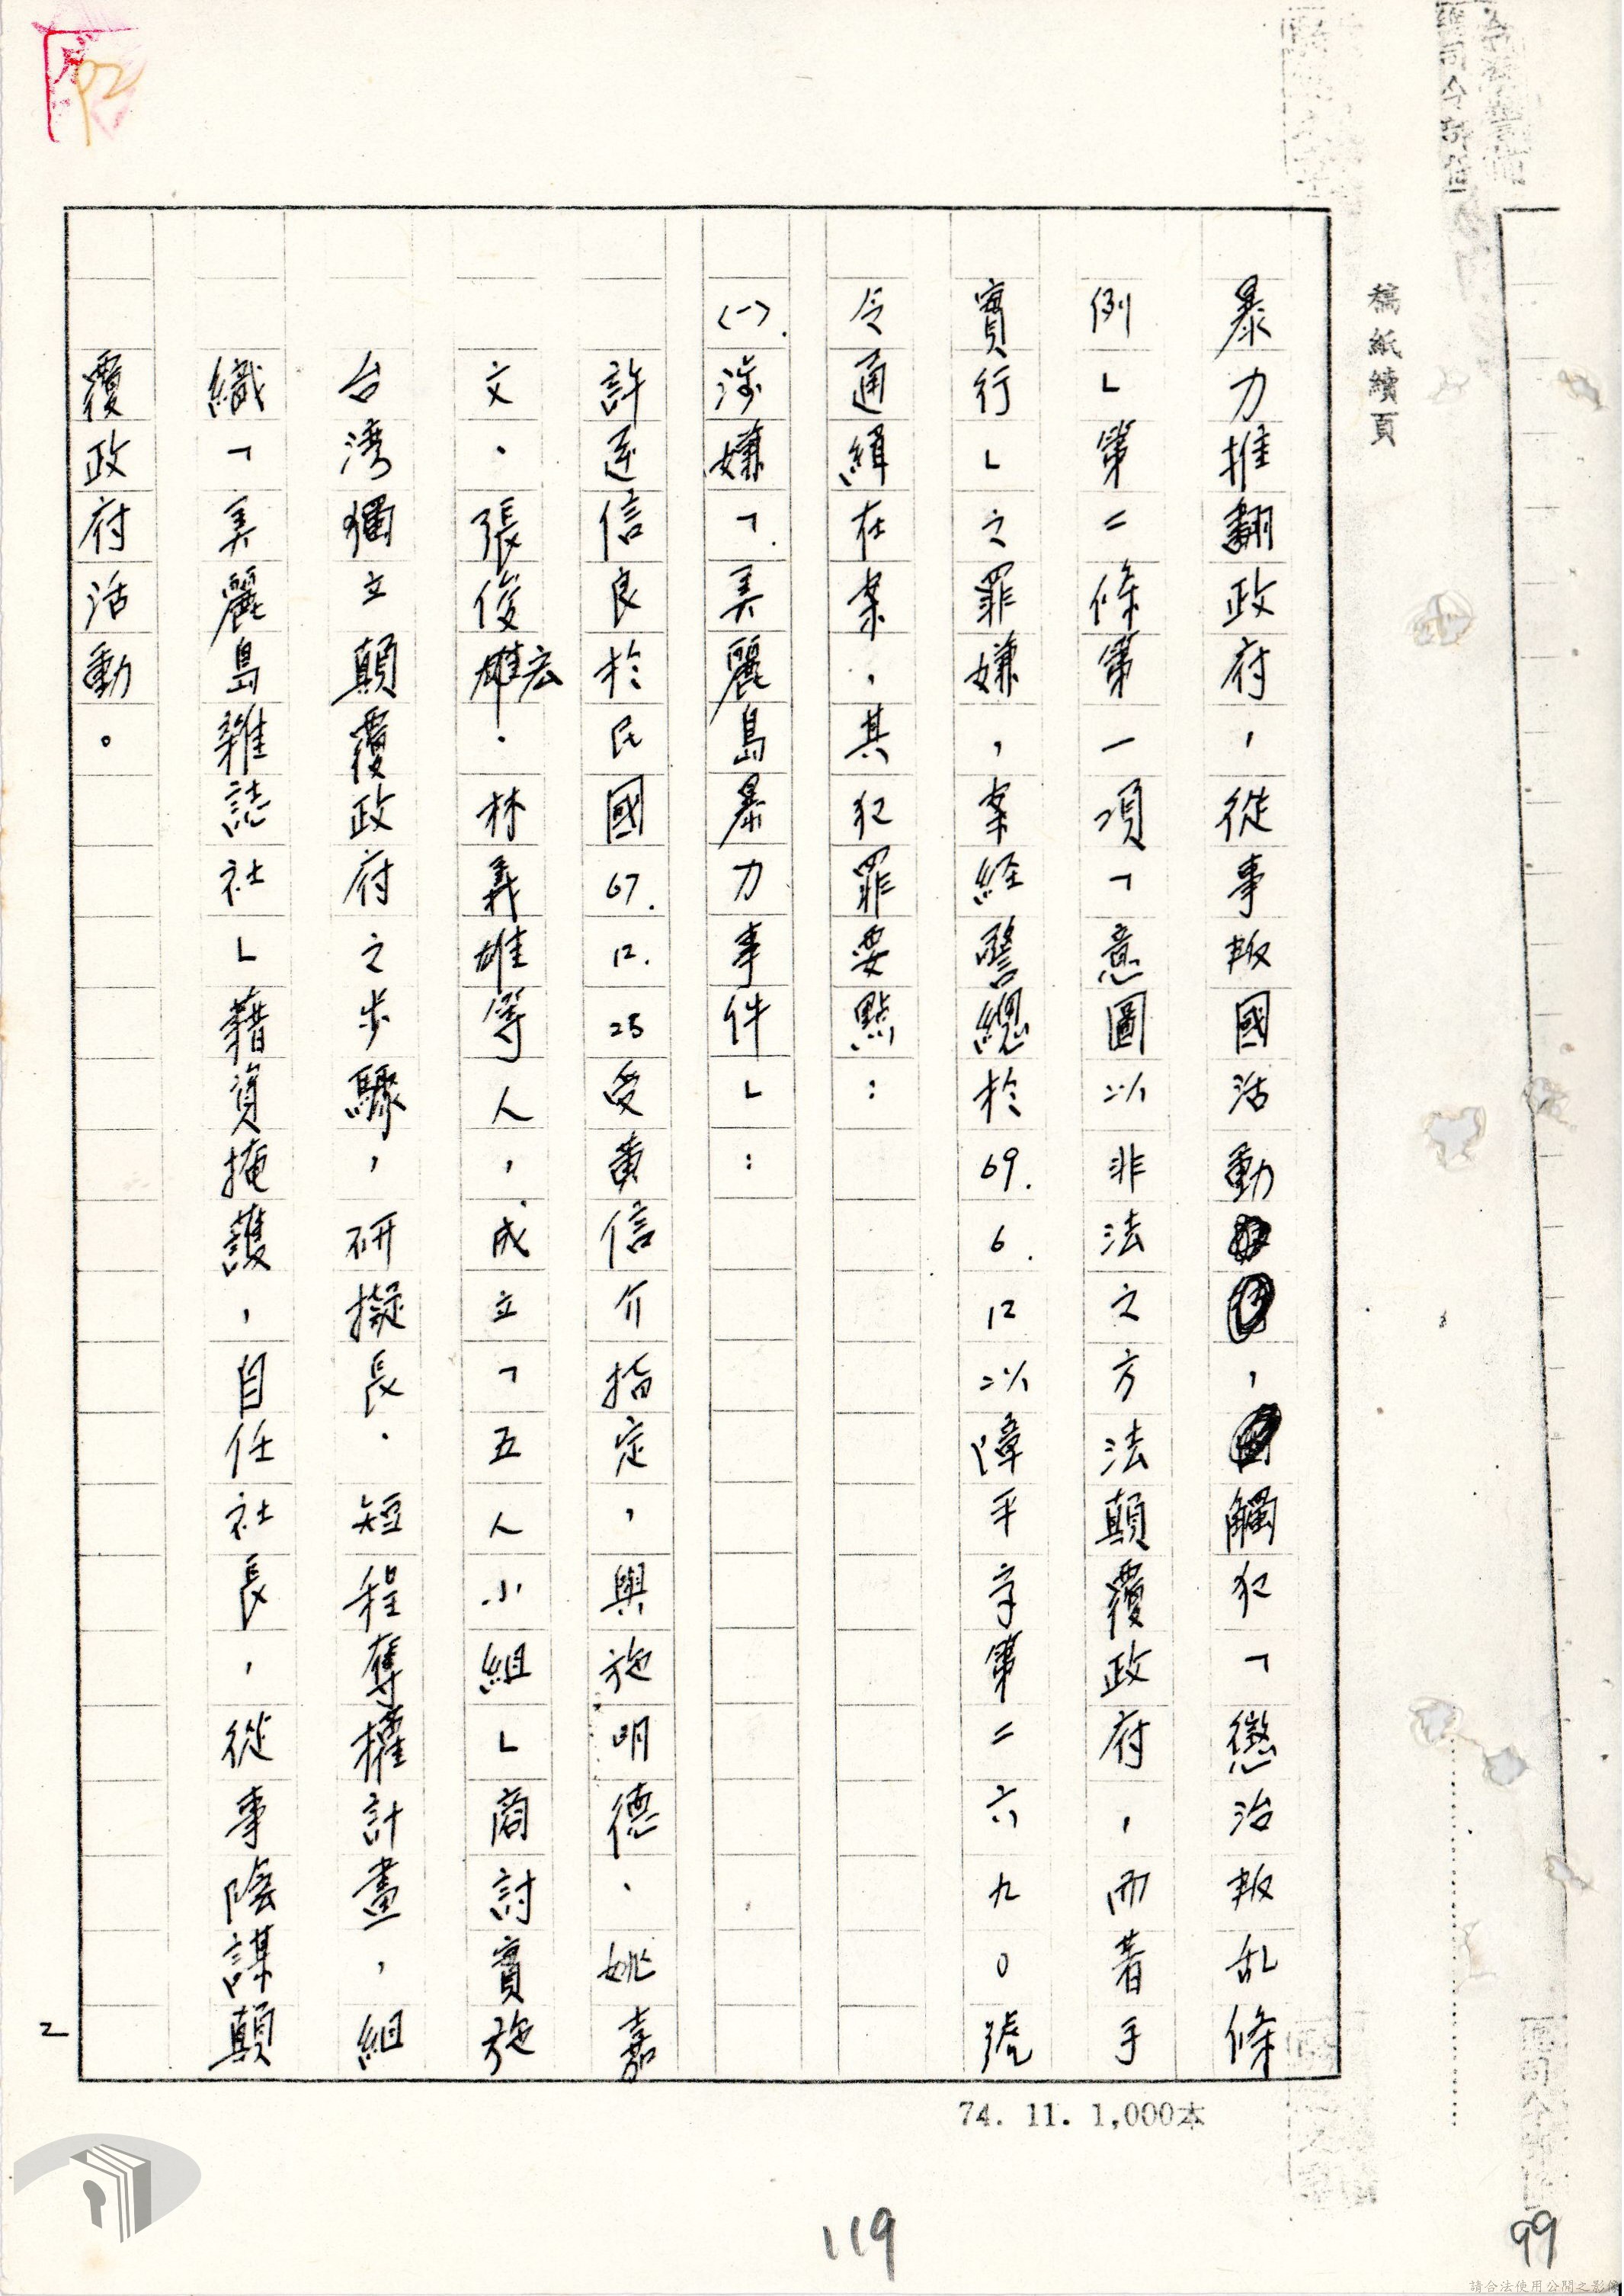 稿紙續頁
暴力推翻政府，從事叛國活動，觸犯「懲治叛乱條
例」第二條第一項「意圖以非法之方法顛覆政府，而著手
實行」之罪嫌，案経警總於69.6.12以障平字第二六九0號
令通緝在案，其犯罪要點：
(一).涉嫌「美麗島暴力事件」：
許逆信良於民國67.12.25受黃信介指定，與施明德、姚嘉
文、張俊宏、林義雄等人，成立「五人小組」商討實施
台湾獨立顛覆政府之步驟，研擬長、短程奪權計畫，組
織「美麗島雜誌社」藉資掩護，自任社長，從事陰謀顛
覆政府活動。
2
74. 11. 1,000本
119
99
92
請合法使用公開之影像